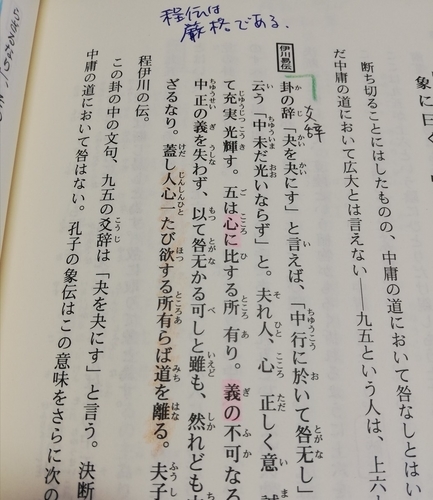 程伝は
厳格である。
象に曰く
断ち切ることにはしたものの、中庸の道において咎なしとはい
だ中庸の道において広大とは言えない――九五という人は、上六
伊川易伝
爻辞
卦の辞「夬を夬にす」と言えば、「中行に於いて咎无し」
云う「中未だ光いならず」と。夫れ人、心 正しく意
て充実光輝す。五は心に比する所 有り。義の不可なる
中正の義を失わず、以て咎无かる可しと雖も、然れども
ざるなり。蓋し人心一たび欲する所有らば道を離る。夫子
程伊川の伝。
この卦の中の文句、九五の爻辞は「夬を夬にす」と言う。決断
中庸の道において咎はない。孔子の象伝はこの意味をさらに次の